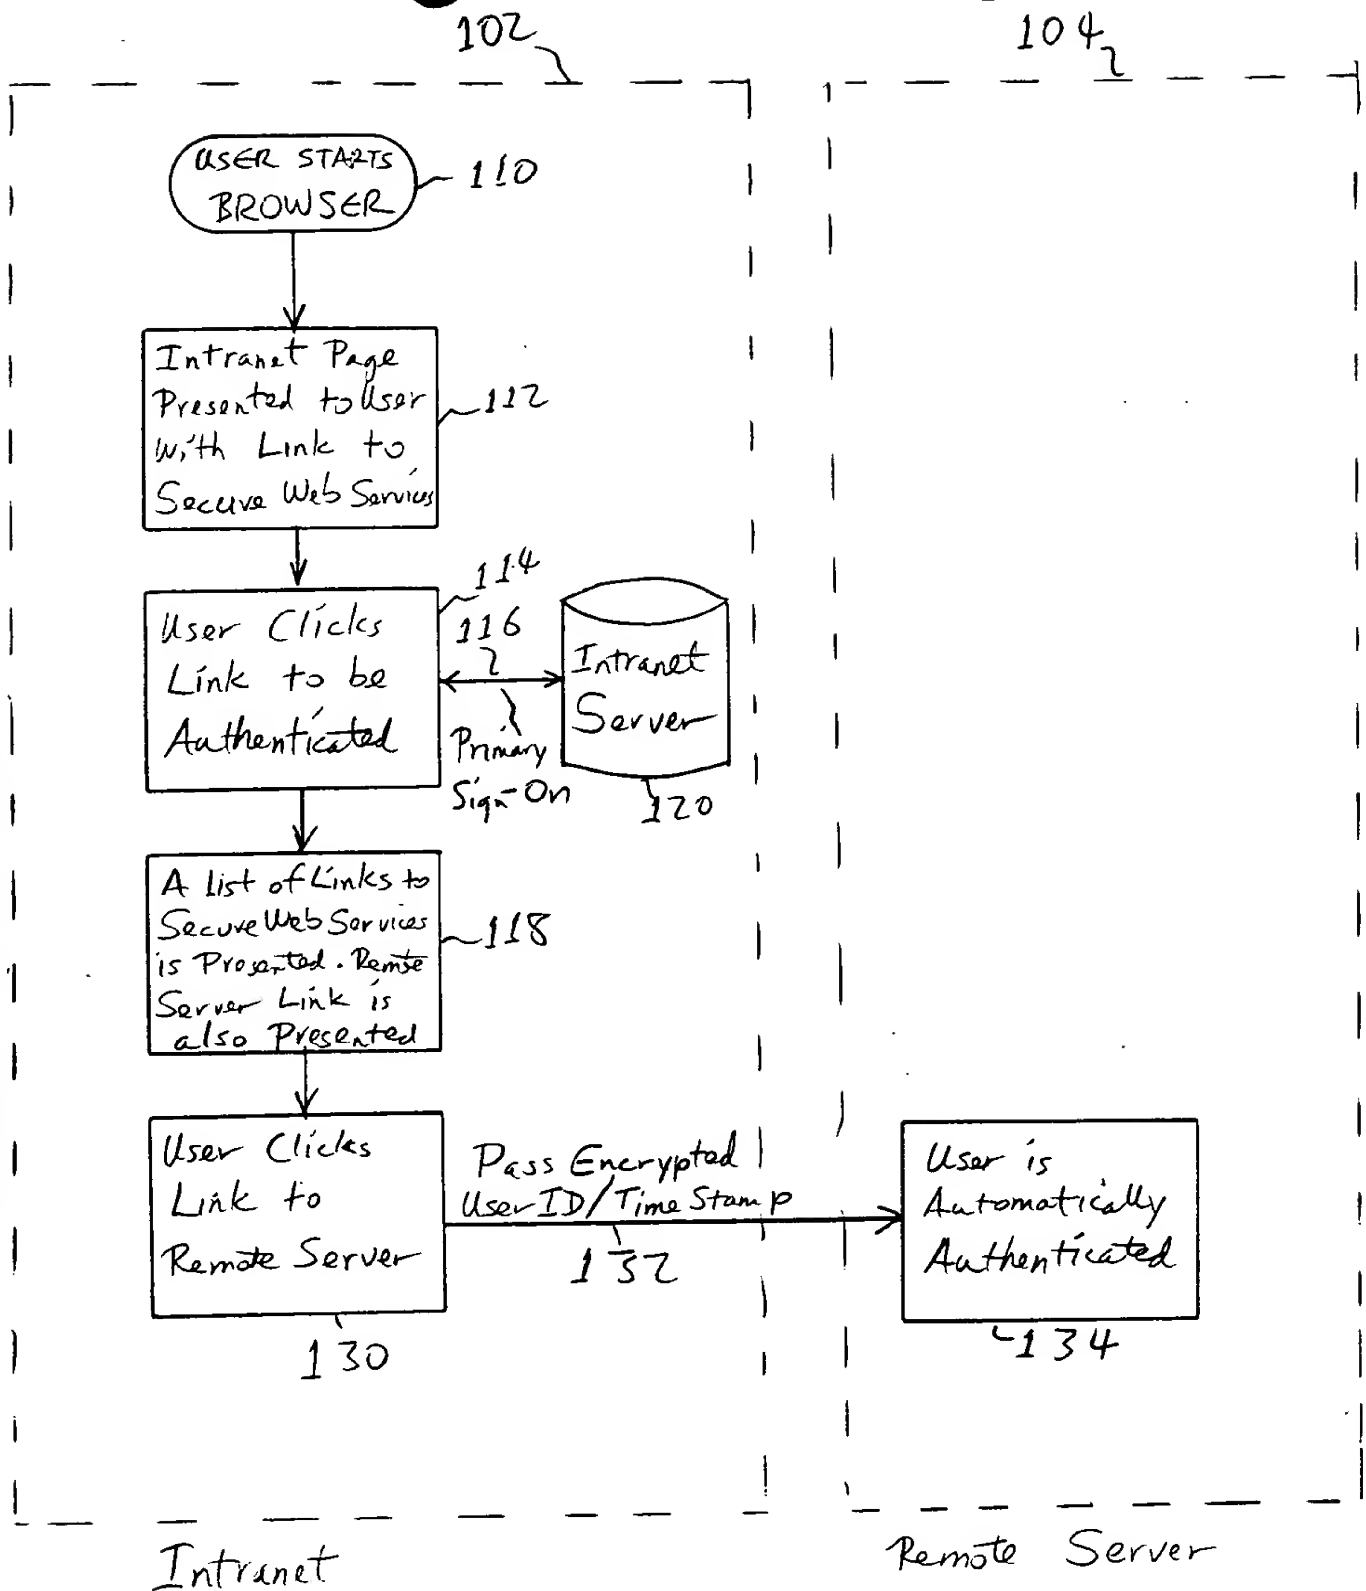 102
104
USER STARTS
BROWSER
110
Intranet Page
Presented to User
With Link to
Secure Web Services
112
114
User Clicks
Link to be
Authenticated
116
Primary
Sign-On
Intranet
Server
120
A list of Links to
Secure Web Services
is Presented. Remote
Server Link is
also Presented
118
User Clicks
Link to
Remote Server
130
Pass Encrypted
User ID/Time Stamp
132
User is
Automatically
Authenticated
134
Intranet
Remote Server